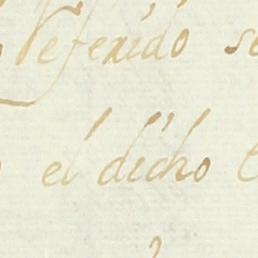 referido se
el dicho